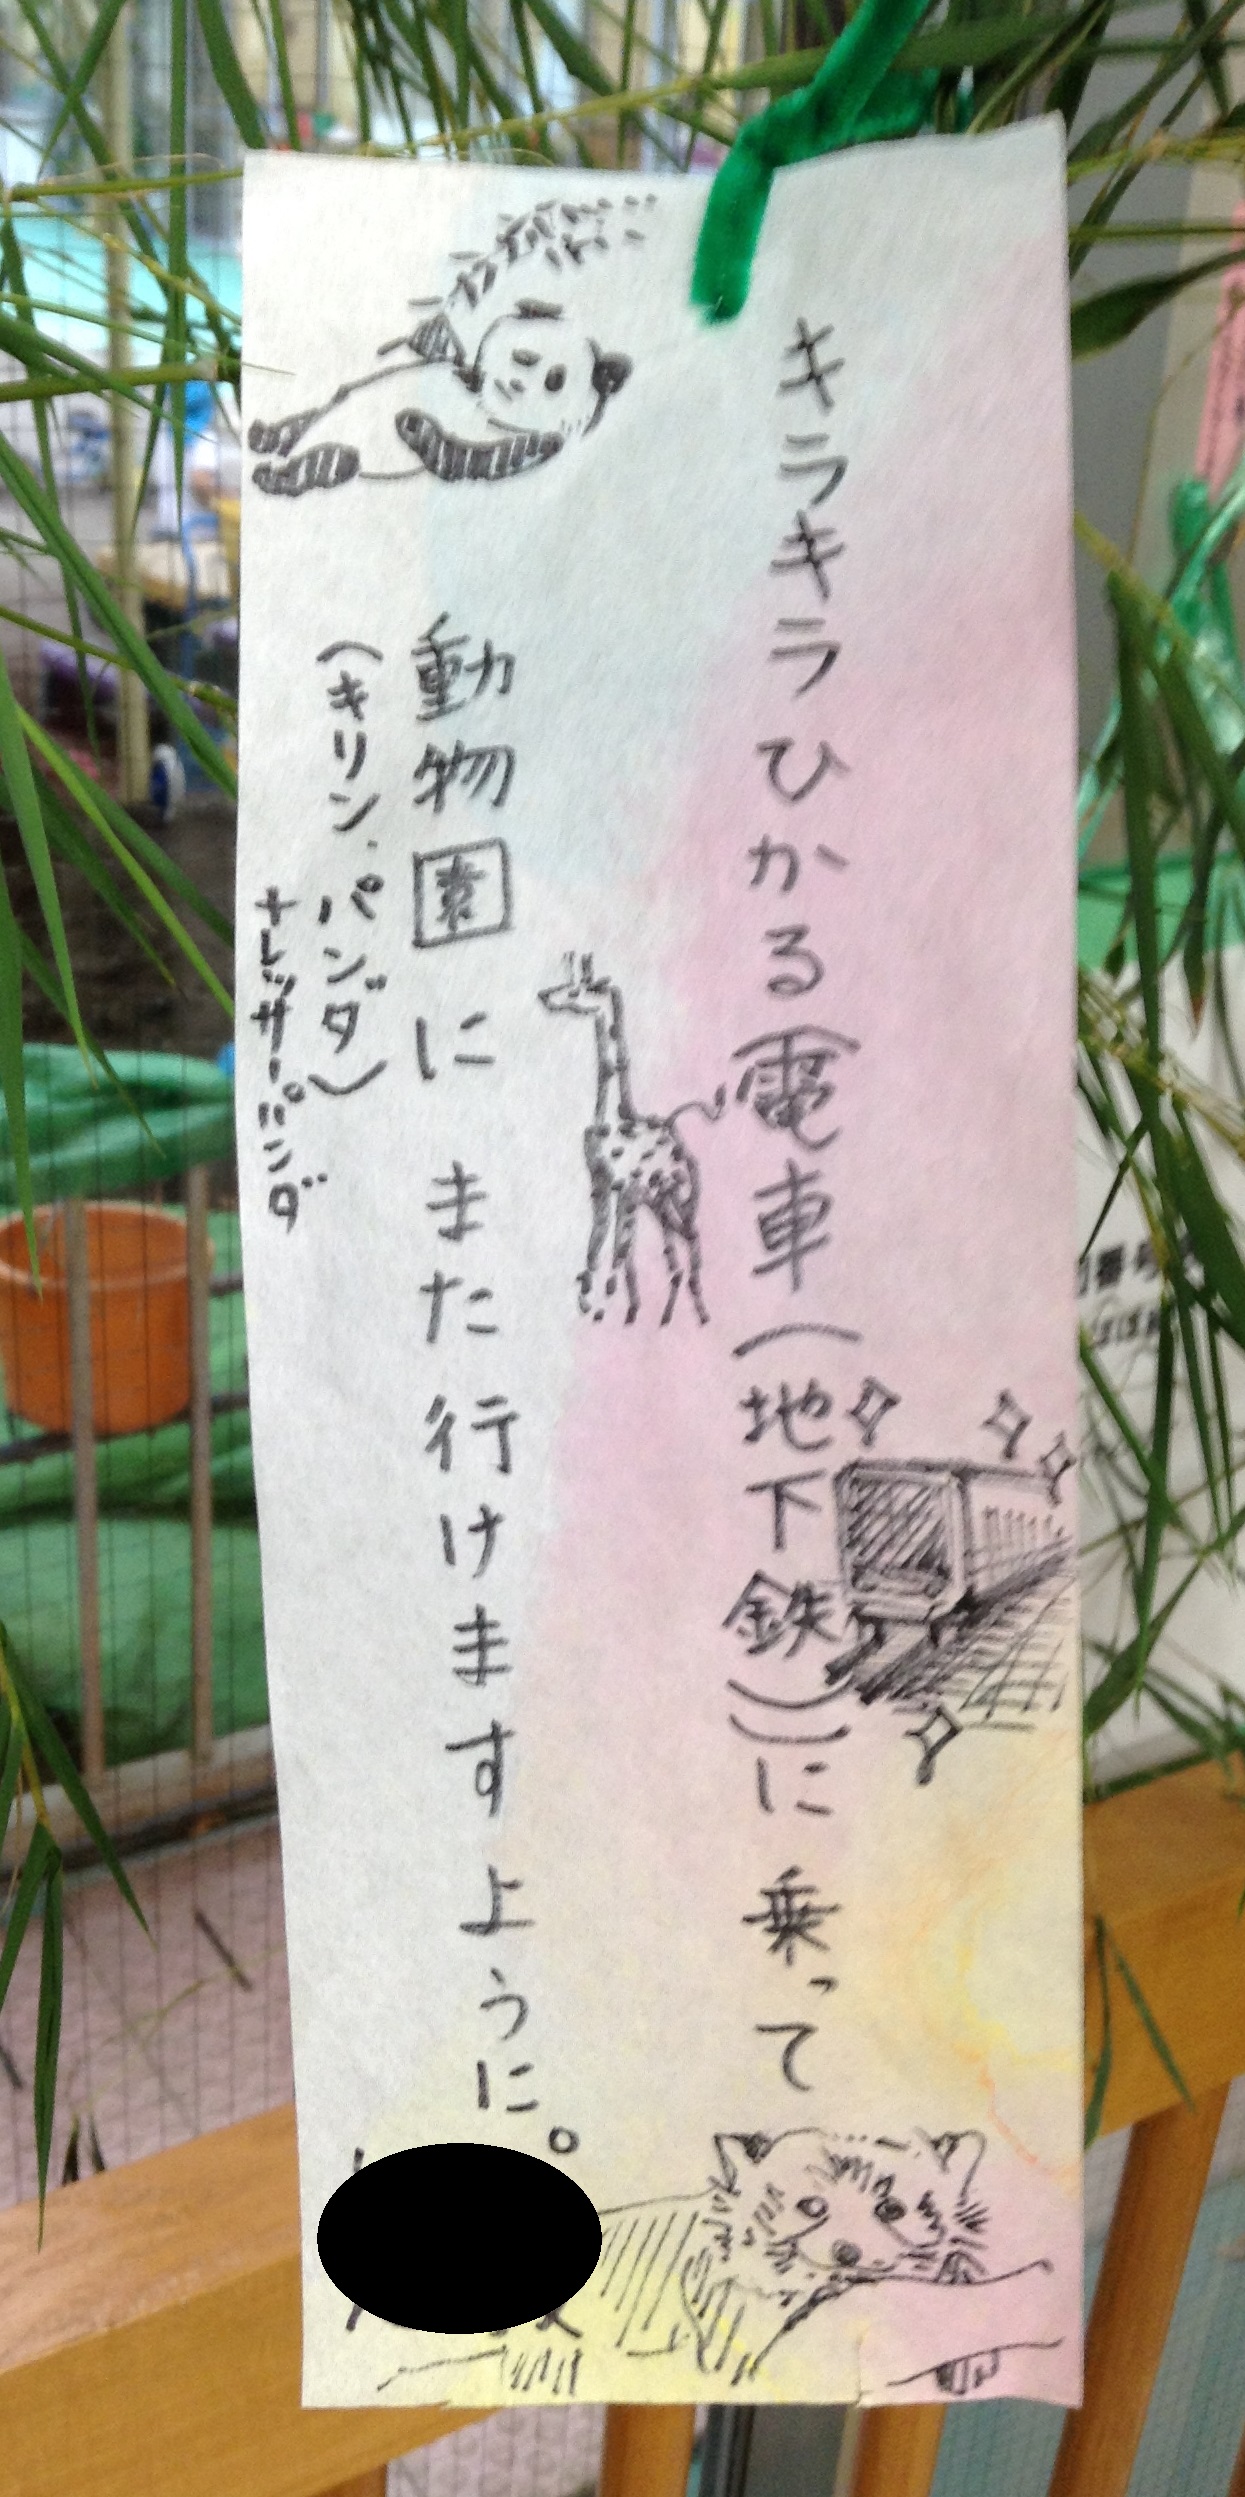 キラキラひかる(電車(地下鉄))に乗って
動物園にまた行けますように。
(キリン、パンダ)
+レッサーパンダ